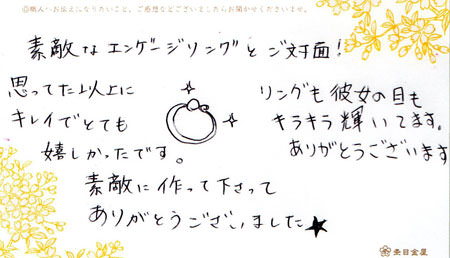 ◎職人へお伝えになりたいこと。ご感想などございましたらお聞かせくださいませ。
素敵なエンゲージリングとご対面!
思ってた以上に
キレイでとても
嬉しかったです。
リングも彼女の目も
キラキラ輝いてます。
ありがとうございます
素敵に作って下さって
ありがとうございました★
杢目金屋